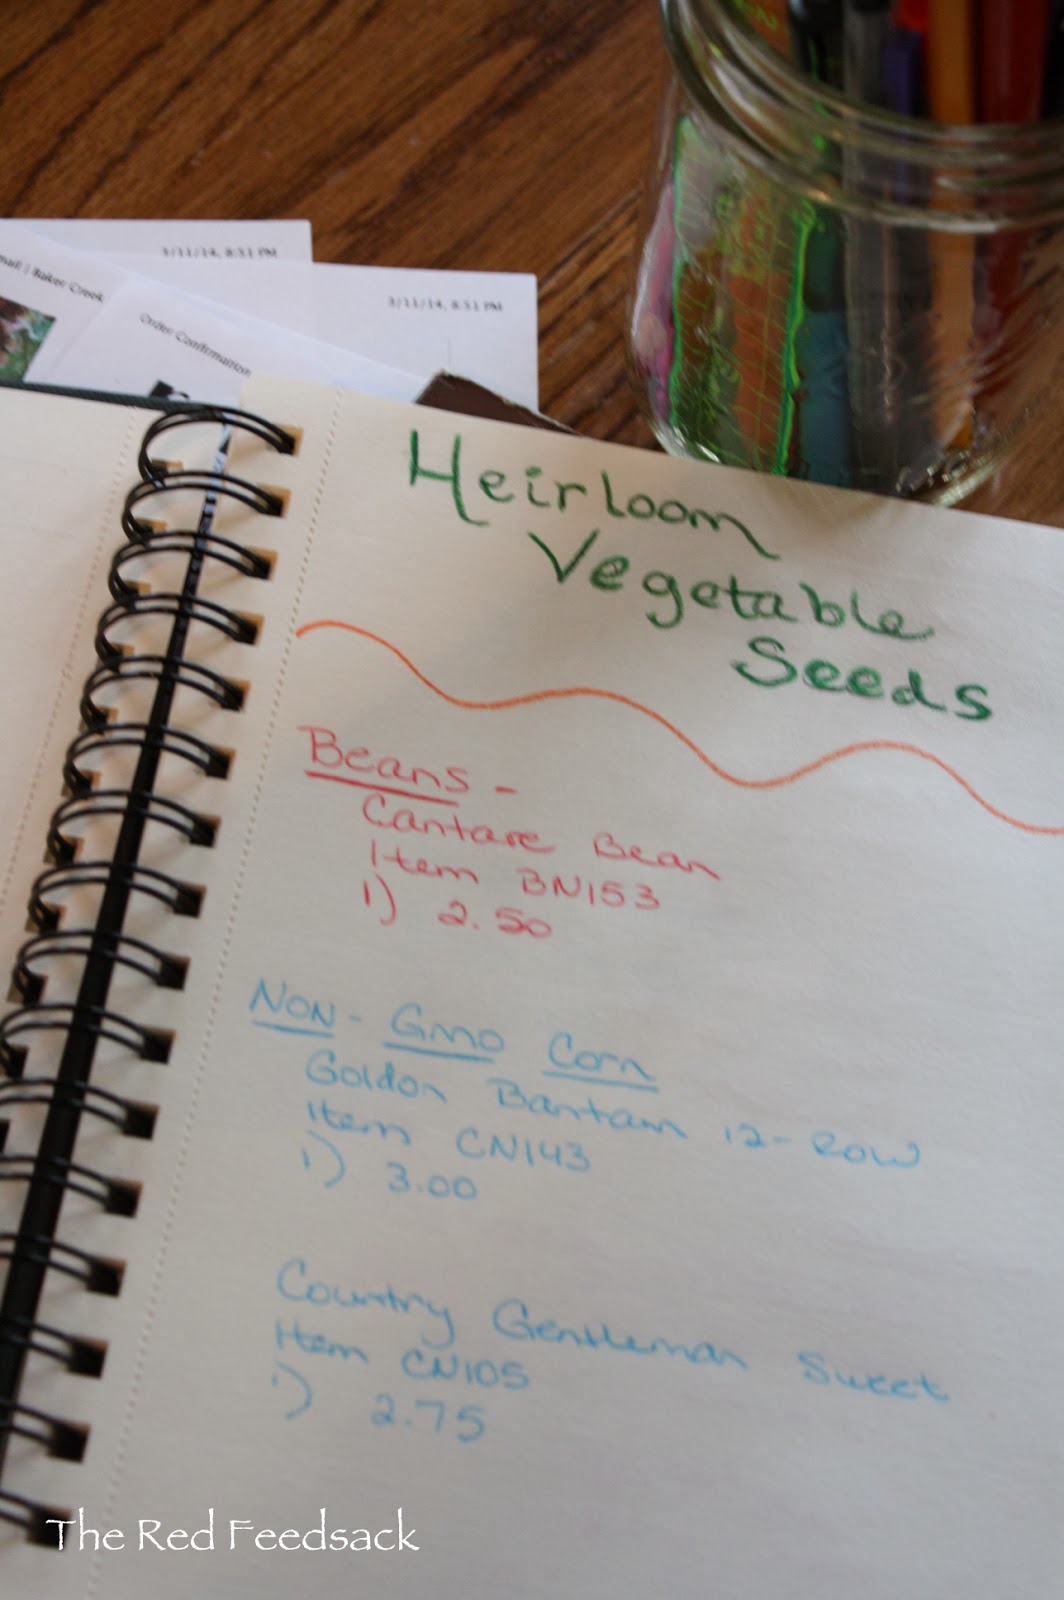 3/11/14, 8:51 PM
3/11/14, 8:51 PM
mail | Baker Creek
Order Confirmation
Heirloom
Vegetable
Seeds
Beans -
Cantare Bean
Item BN153
1) 2.50
Non- Gmo Corn
Goldon Bantam 12-Row
Item CN143
1) 3.00
Country Gentleman Sweet
Item CN105
1) 2.75
The Red Feedsack